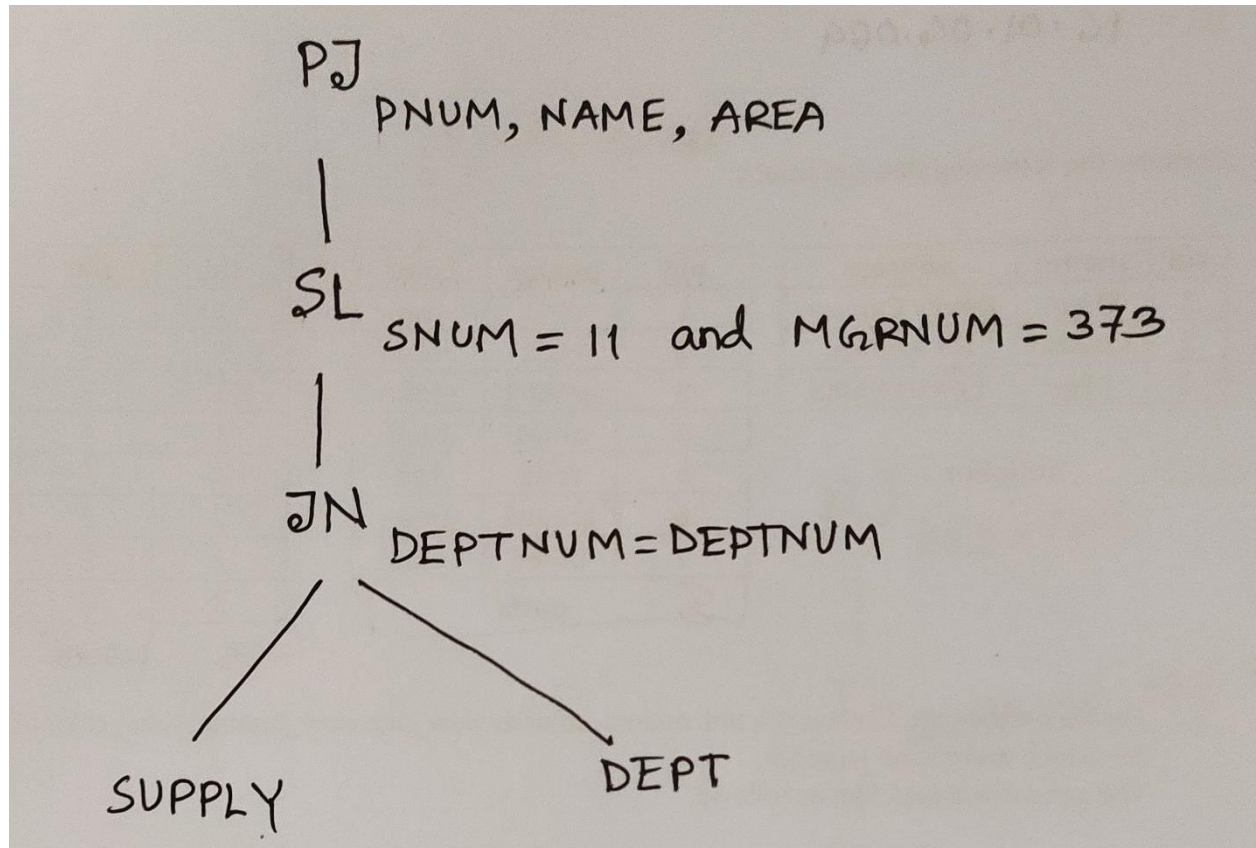 PJ
PNUM, NAME, AREA
SL
SNUM = 11 and MGRNUM = 373
JN
DEPTNUM = DEPTNUM
SUPPLY
DEPT